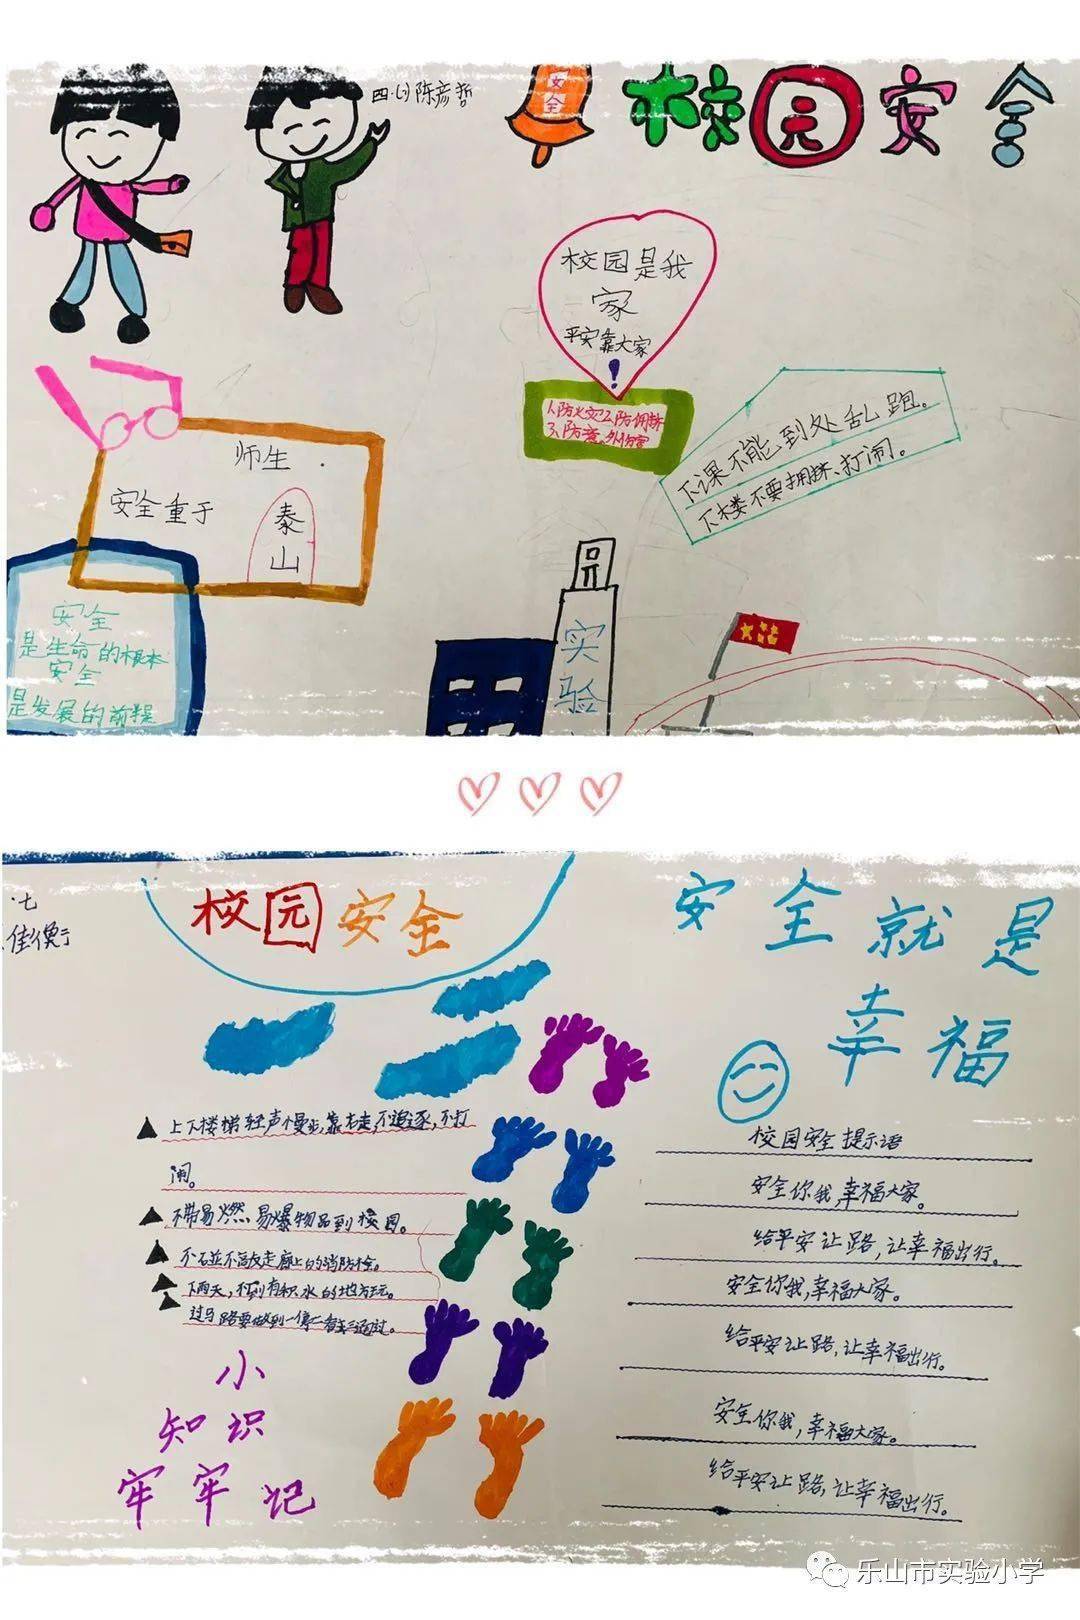 四·(1)陈彦哲
安全
校园安全
校园是我
家
平安靠大家
!
1.防火灾2.防拥挤
3.防意外伤害
下课不能到处乱跑。
下楼不要拥挤、打闹。
师生
安全重于
泰山
安全
是生命的根本
安全
是发展的前提
实验
·七
佳衡
校园安全
安全就是
幸福
上下楼梯轻声慢步,靠右走,不追逐,不打
闹。
不带易燃易爆物品到校园。
不碰不敲走廊上的消防栓。
下雨天,不到有积水的地方玩。
过马路要做到一停二看三通过。
小
知识
牢牢记
校园安全提示语
安全你我,幸福大家。
给平安让路,让幸福出行。
安全你我,幸福大家。
给平安让路,让幸福出行。
安全你我,幸福大家。
给平安让路,让幸福出行。
乐山市实验小学